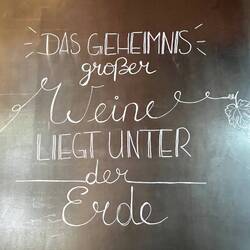 DAS GEHEIMNIS
großer
Weine
LIEGT UNTER
der
Erde